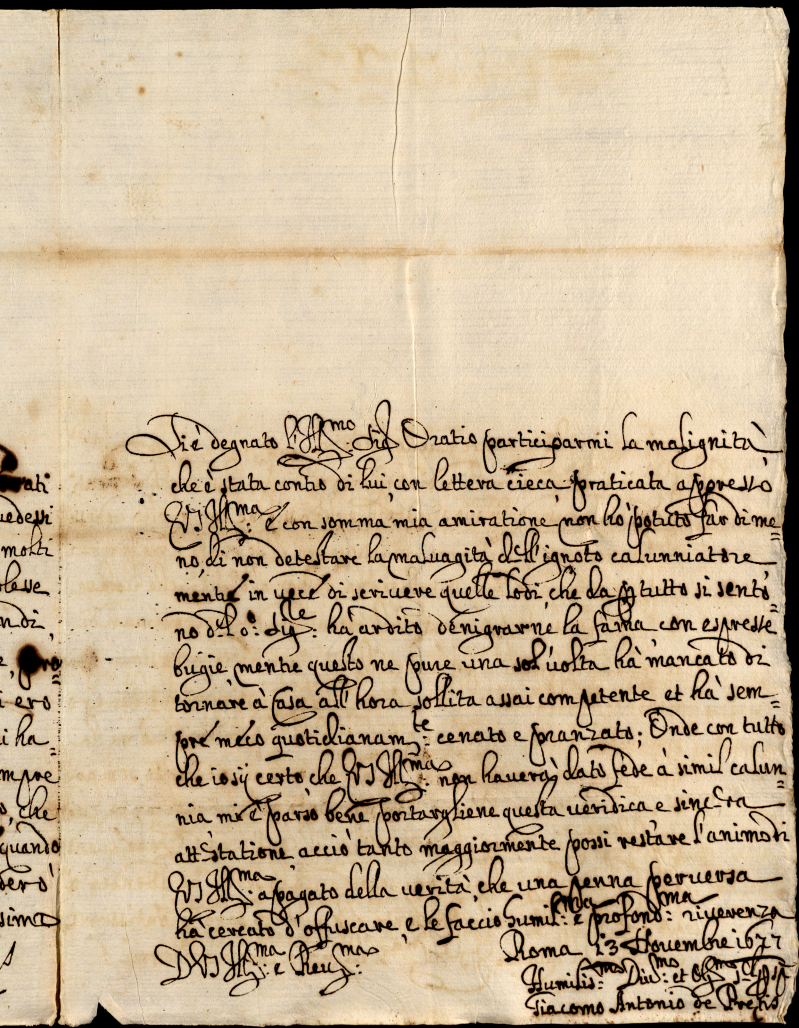 rati
uedessi
molti
olesse
ndi,
pro=
i ero
i ha=
mpre
o, che
quando
derò
sima
Si è degnato l'Ill^mo: Sig^r Oratio participarmi la malignità
che è stata contro di lui con lettera cieca praticata appresso
VS Ill^ma: e con somma mia amiratione non ho potuto far di me=
no, di non detestare la maluagità dell'ignoto calunniatore
mentre in uece di scriuere quelle lodi, che da p tutto si sento=
no d^l o: Sig^re: ha ardito denigrarne la fama con espresse
bugie mentre questo ne pure una sol uolta ha mancato di
tornare à Casa all'hora sollita assai competente et ha sem=
pre meco quotidianam^te: cenato e pranzato; Onde con tutto
che io sij certo che VS Ill^ma: non hauerà dato fede à simil calun=
nia mi è parso bene portargliene questa ueridica e sincera
attestatione acciò tanto maggiormente possi restare l'animo di
VS Ill^ma: apagato della uerità, che una penna peruersa
ha cercato d'offuscare, e le faccio humil^ma: e profond^ma: riuerenza
D VS Ill^ma: e Reu^ma:
Roma 13 Nouembre 1677
Humilis^mo: Diu^mo: et Obl^mo
Giacomo Antonio de Pretis